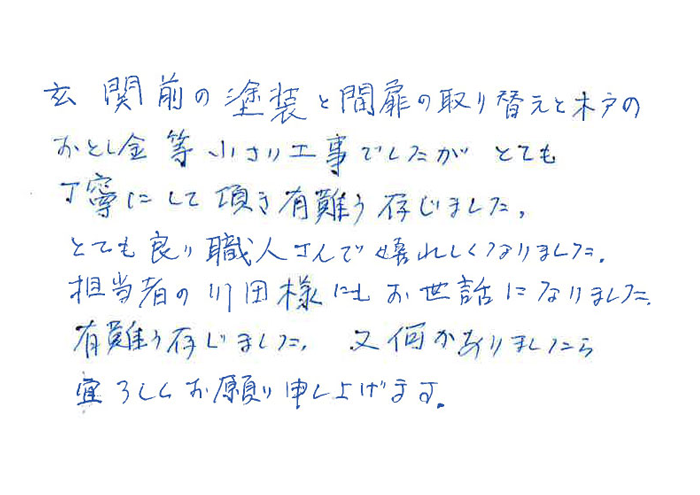 玄関前の塗装と門扉の取り替えと木戸の
おとし金等小さい工事でしたがとても
丁寧にして頂き有難う存じました。
とても良い職人さんで嬉しくなりました。
担当者の川田様にもお世話になりました。
有難う存じました。又何かありましたら
宜ろしくお願い申し上げます。